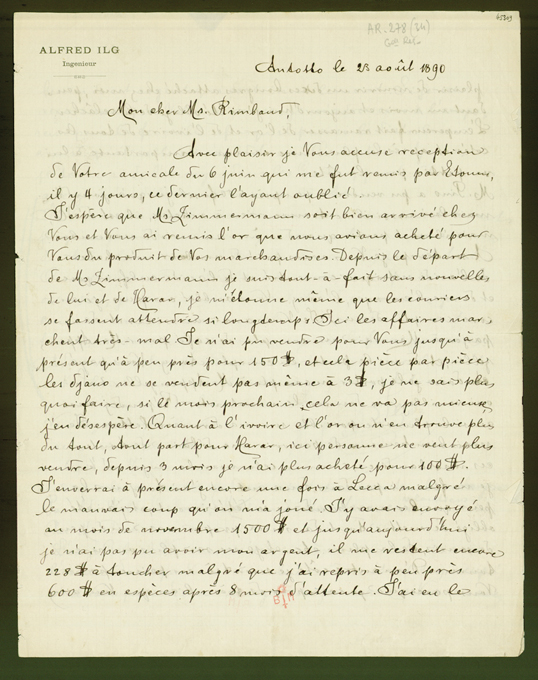 45209
AR. 278 (24)
ALFRED ILG
Ingenieur
Antotto le 23 août 1890
Mon cher Mr. Rimbaud,
Avec plaisir je Vous accuse reception
de Votre amicale du 6 juin qui me fut remis par Etoun,
il y 4 jours, ce dernier l'ayant oublié.
J'espère que Mr Zimmermann soit bien arrivé chez
Vous et Vous ai remis l'or que nous avions acheté pour
Vous du produit de Vos marchandises. Depuis le départ
de Mr Zimmermann je suis tout-à-fait sans nouvelles
de lui et de Harar, je m'étonne même que les couriers
se fassent attendre si longtemps. Ici les affaires mar
chent très-mal Je n'ai pu vendre pour Vous jusqu'à
présent qu'à peu près pour 150 $, et cela pièce par pièce
les djano ne se vendent pas même à 3 $, je ne sais plus
quoi faire, si le mois prochain cela ne va pas mieux,
j'en désespère. Quant à l'ivoire et l'or on n'en trouve plus
du tout, tout part pour Harar, ici personne ne veut plus
vendre, depuis 3 mois je n'ai plus acheté pour 100 $.
J'enverrai à présent encore une fois à Lecca malgré
le mauvais coup qu'on m'a joué J'y avais envoyé
au mois de novembre 1500 $ et jusqu'aujourd'hui
je n'ai pas pu avoir mon argent, il me restent encore
228 $ à toucher malgré que j'ai repris à peu près
600 $ en espèces après 8 mois d'attente. J'ai eu le